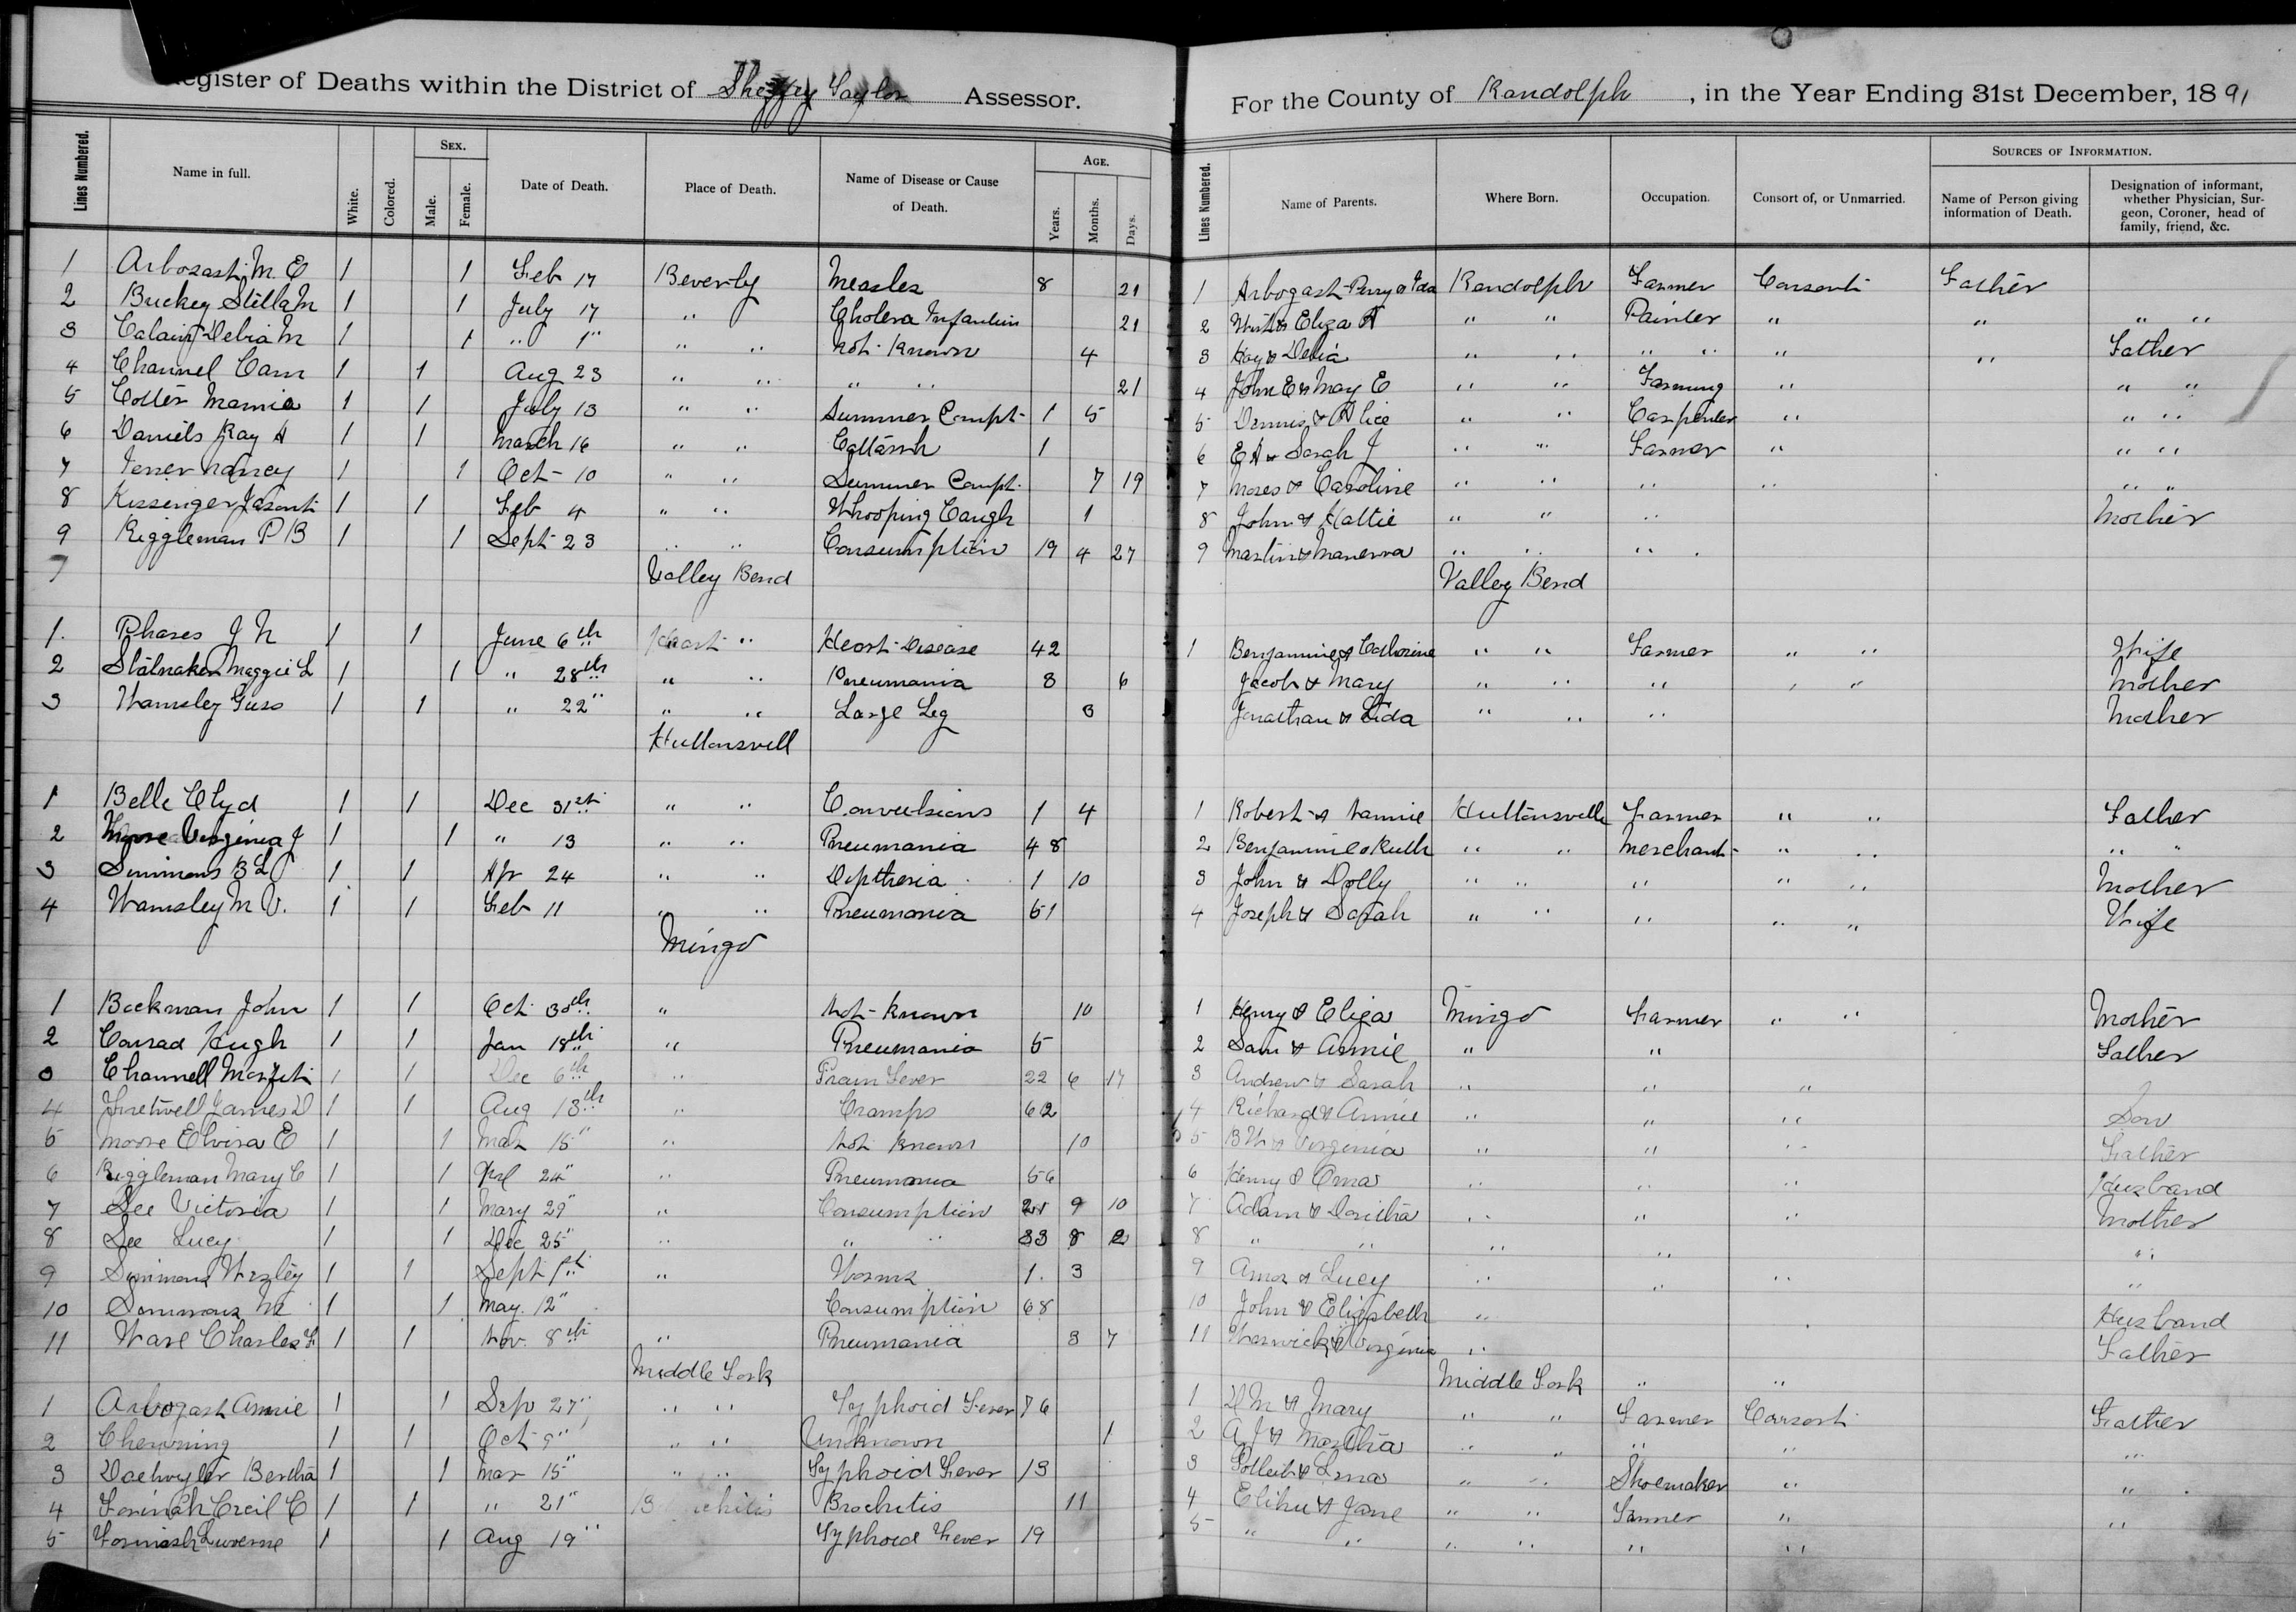 Register of Deaths within the District of Sheffey Taylor Assessor.
For the County of Randolph, in the Year Ending 31st December, 1891
Lines Numbered. Name in full. White. Colored. SEX. Male. Female. Date of Death. Place of Death. Name of Disease or Cause of Death. AGE. Years. Months. Days.
Lines Numbered. Name of Parents. Where Born. Occupation. Consort of, or Unmarried. SOURCES OF INFORMATION. Name of Person giving information of Death. Designation of informant, whether Physician, Surgeon, Coroner, head of family, friend, &c.
1 Arbogast M. E 1 1 Feb 17 Beverly Measles 8 21 1 Arbogast Perry & Ida Randolph Farmer Consort Father
2 Buckey Stella M 1 1 July 17 " Cholera Infantum 21 2 & Eliza A " " Painter " " " "
3 Delia M 1 1 " 1" " " Not Known 4 3 Hay & Delia " " " " " " Father
4 Channel Cam 1 1 Aug 23 " " " " 21 4 John E & May E " " Farming " " "
5 Mamie 1 1 July 13 " " Summer Compt 1 5 5 Dennis & Alice " " Carpenter " " "
6 Daniels Ray A 1 1 March 16 " " Cattarrh 1 6 E A & Sarah J " " Farmer " " "
7 Nancey 1 1 Oct 10 " " Summer Compt. 7 19 7 Moses & Caroline " " " " " "
8 Kissenger 1 1 Feb 4 " " Whooping Caugh 1 8 John & Hattie " " " Mother
9 Riggleman P B 1 1 Sept 23 " " Consumption 19 4 27 9 Martin & Manerva " " "
Valley Bend Valley Bend
1. Phares J N 1 1 June 6th " Heart Disease 42 1 Benjamine & Catherine " " Farmer " " Wife
2 Stalnaker Maggie L 1 1 " 28th " " Pneumania 3 6 Jacob & Mary " " " " " Mother
3 Wamsley Guss 1 1 " 22" " " Large Leg 3 Jonathan & Lida " " " Mother
Huttonsvill
1 Belle Clyd 1 1 Dec 31st " " Convulsions 1 4 1 Robert & Nannie Huttonsville Farmer " " Father
2 Virginia J 1 1 " 13 " " Pneumania 48 2 Benjamine & Ruth " " Merchant " " " "
3 Simmons B L 1 1 Apr 24 " " Diptheria 1 10 3 John & Dolly " " " " " Mother
4 Wamsley M V. 1 1 Feb 11 " " Pneumania 61 4 Joseph & Sarah " " " " " Wife
Mingo
1 Beckman John 1 1 Oct 30th " Not Known 10 1 Henry & Eliza Mingo Farmer " " Mother
2 Conrad Hugh 1 1 Jan 18th " Pneumania 5 2 Sam & Annie " " Father
3 Channell 1 1 Dec 6th " Fever 22 6 17 3 Andrew & Sarah " " "
4 James D 1 1 Aug 13th " Cramps 62 4 Richard & Annie " " " Son
5 Moore Elvira E 1 1 Mar 15" " Not Known 10 5 B W & Virginia " " " Father
6 Riggleman Mary C 1 1 24" " Pneumania 56 6 Henry & Oma " " " Husband
7 See Victoria 1 1 Mary 29" " Consumption 21 9 10 7 Adam & " " " Mother
8 See Lucy 1 1 Dec 25" " " " 33 8 2 8 " " " " "
9 Simmons Wesley 1 1 Sept " Worms 1. 3 9 Amos & Lucy " " " "
10 Simmons M 1 1 May. 12" Consumption 68 10 John & Elizabeth " Husband
11 Ware Charles 1 1 Nov. 8th " Pneumania 3 7 11 Warwick & Virginia " Father
Middle Fork Middle Fork " "
1 Arbogast Annie 1 1 Sep 27" " " Typhoid Fever 76 1 D M & Mary " " Farmer Consort Father
2 Chewning 1 1 Oct 9" " " Unknown 1 2 A J & Martha " " " " "
3 Bertha 1 1 Mar 15" " " Typhoid Fever 13 3 & Lena " " Shoemaker " "
4 Cecil C 1 1 " 21" Brochitis 11 4 Elihu & Jane " " Farmer " "
5 Luverne 1 1 Aug 19" Typhoid Fever 19 5 " " " " " "